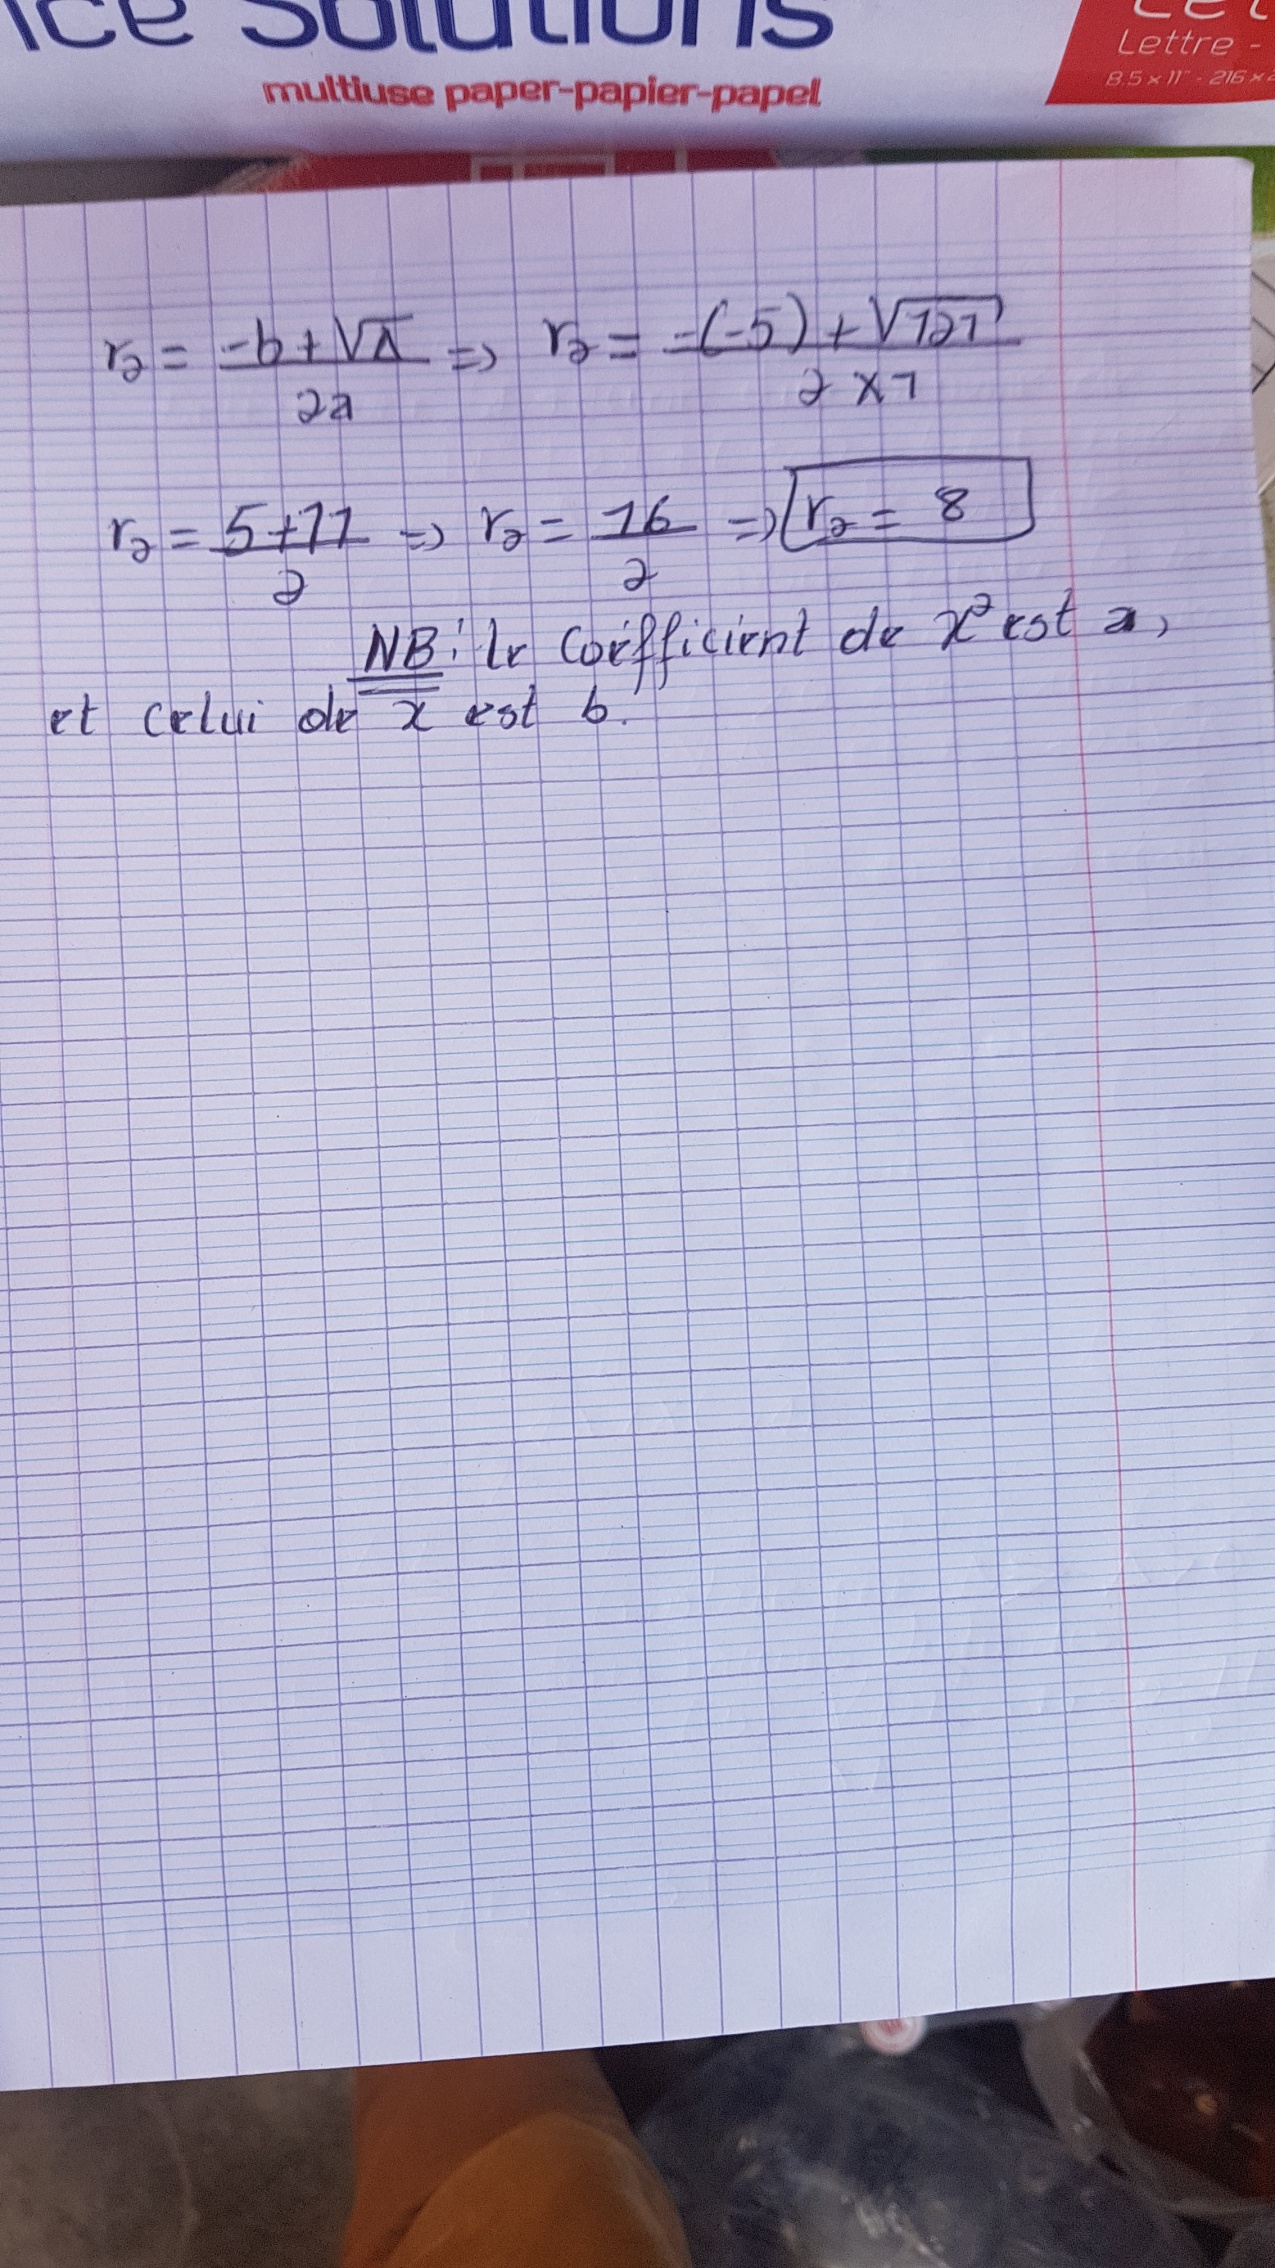 ice Solutions
multiuse paper-papier-papel
Lettre -
8.5 x 11" - 216 x 2
r₂ = (-b+√Δ)/2a => r₂ = (-(-5)+√121)/(2×1)
r₂ = (5+11)/2 => r₂ = 16/2 => r₂ = 8
NB: le coéfficient de x² est a,
et celui de x est b.